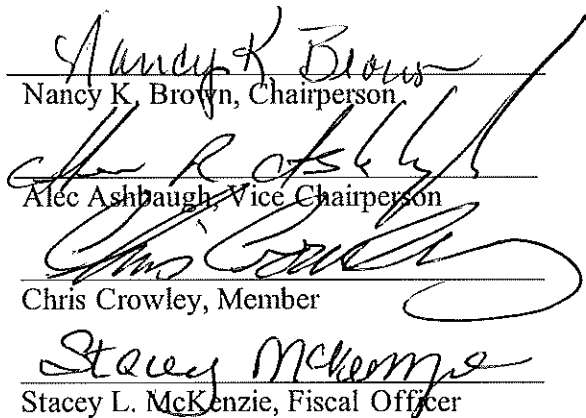 Nancy K Brown
Nancy K. Brown, Chairperson
R Ashbaugh
Alec Ashbaugh, Vice Chairperson
Chris Crowley
Chris Crowley, Member
Stacey McKenzie
Stacey L. McKenzie, Fiscal Officer